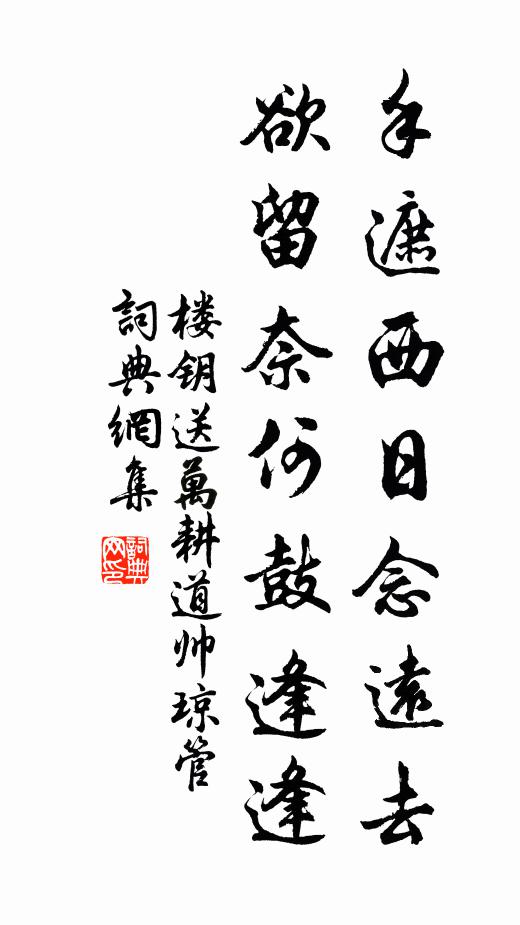 手遮西日念遠去
欲留奈何鼓逢逢
楼钥送萬耕道帅琼管
詞典網集
詞典網印